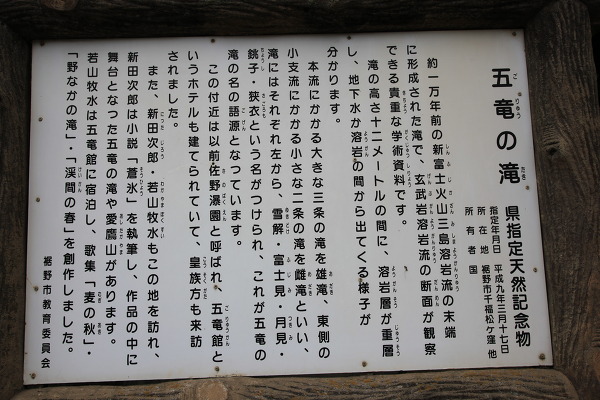 五竜の滝
ご りゅう たき
県指定天然記念物
指定年月日 平成九年三月十七日
所在地 裾野市千福松ケ窪他
所有者 国
約一万年前の新富士火山三島溶岩流の末端
に形成された滝で、玄武岩溶岩流の断面が観察
できる貴重な学術資料です。
滝の高さ十二メートルの間に、溶岩層が重層
し、地下水が溶岩の間から出てくる様子が
分かります。
本流にかかる大きな三条の滝を雄滝、東側の
小支流にかかる小さな二条の滝を雌滝といい、
滝にはそれぞれ左から、雪解・富士見・月見・
銚子・狭衣という名がつけられ、これが五竜の
滝の名の語源となっています。
この付近は以前佐野瀑園と呼ばれ、五竜館と
いうホテルも建てられていて、皇族方も来訪
されました。
また、新田次郎、若山牧水もこの地を訪れ、
新田次郎は小説「蒼氷」を執筆し、作品の中に
舞台となつた五竜の滝や愛鷹山があります。
若山牧水は五竜館に宿泊し、歌集「麦の秋」・
「野なかの滝」・「渓間の春」を創作しました。
裾野市教育委員会